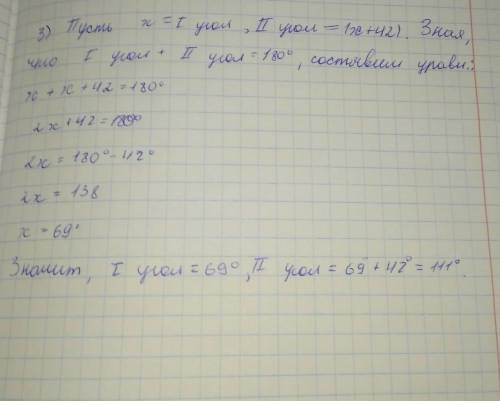 3) Пусть x = I угол, II угол = (x+42). Зная,
что I угол + II угол = 180°, составим уравн.:
x + x + 42 = 180°
2x + 42 = 180°
2x = 180° - 42°
2x = 138
x = 69°
Значит, I угол = 69°, II угол = 69° + 42° = 111°.